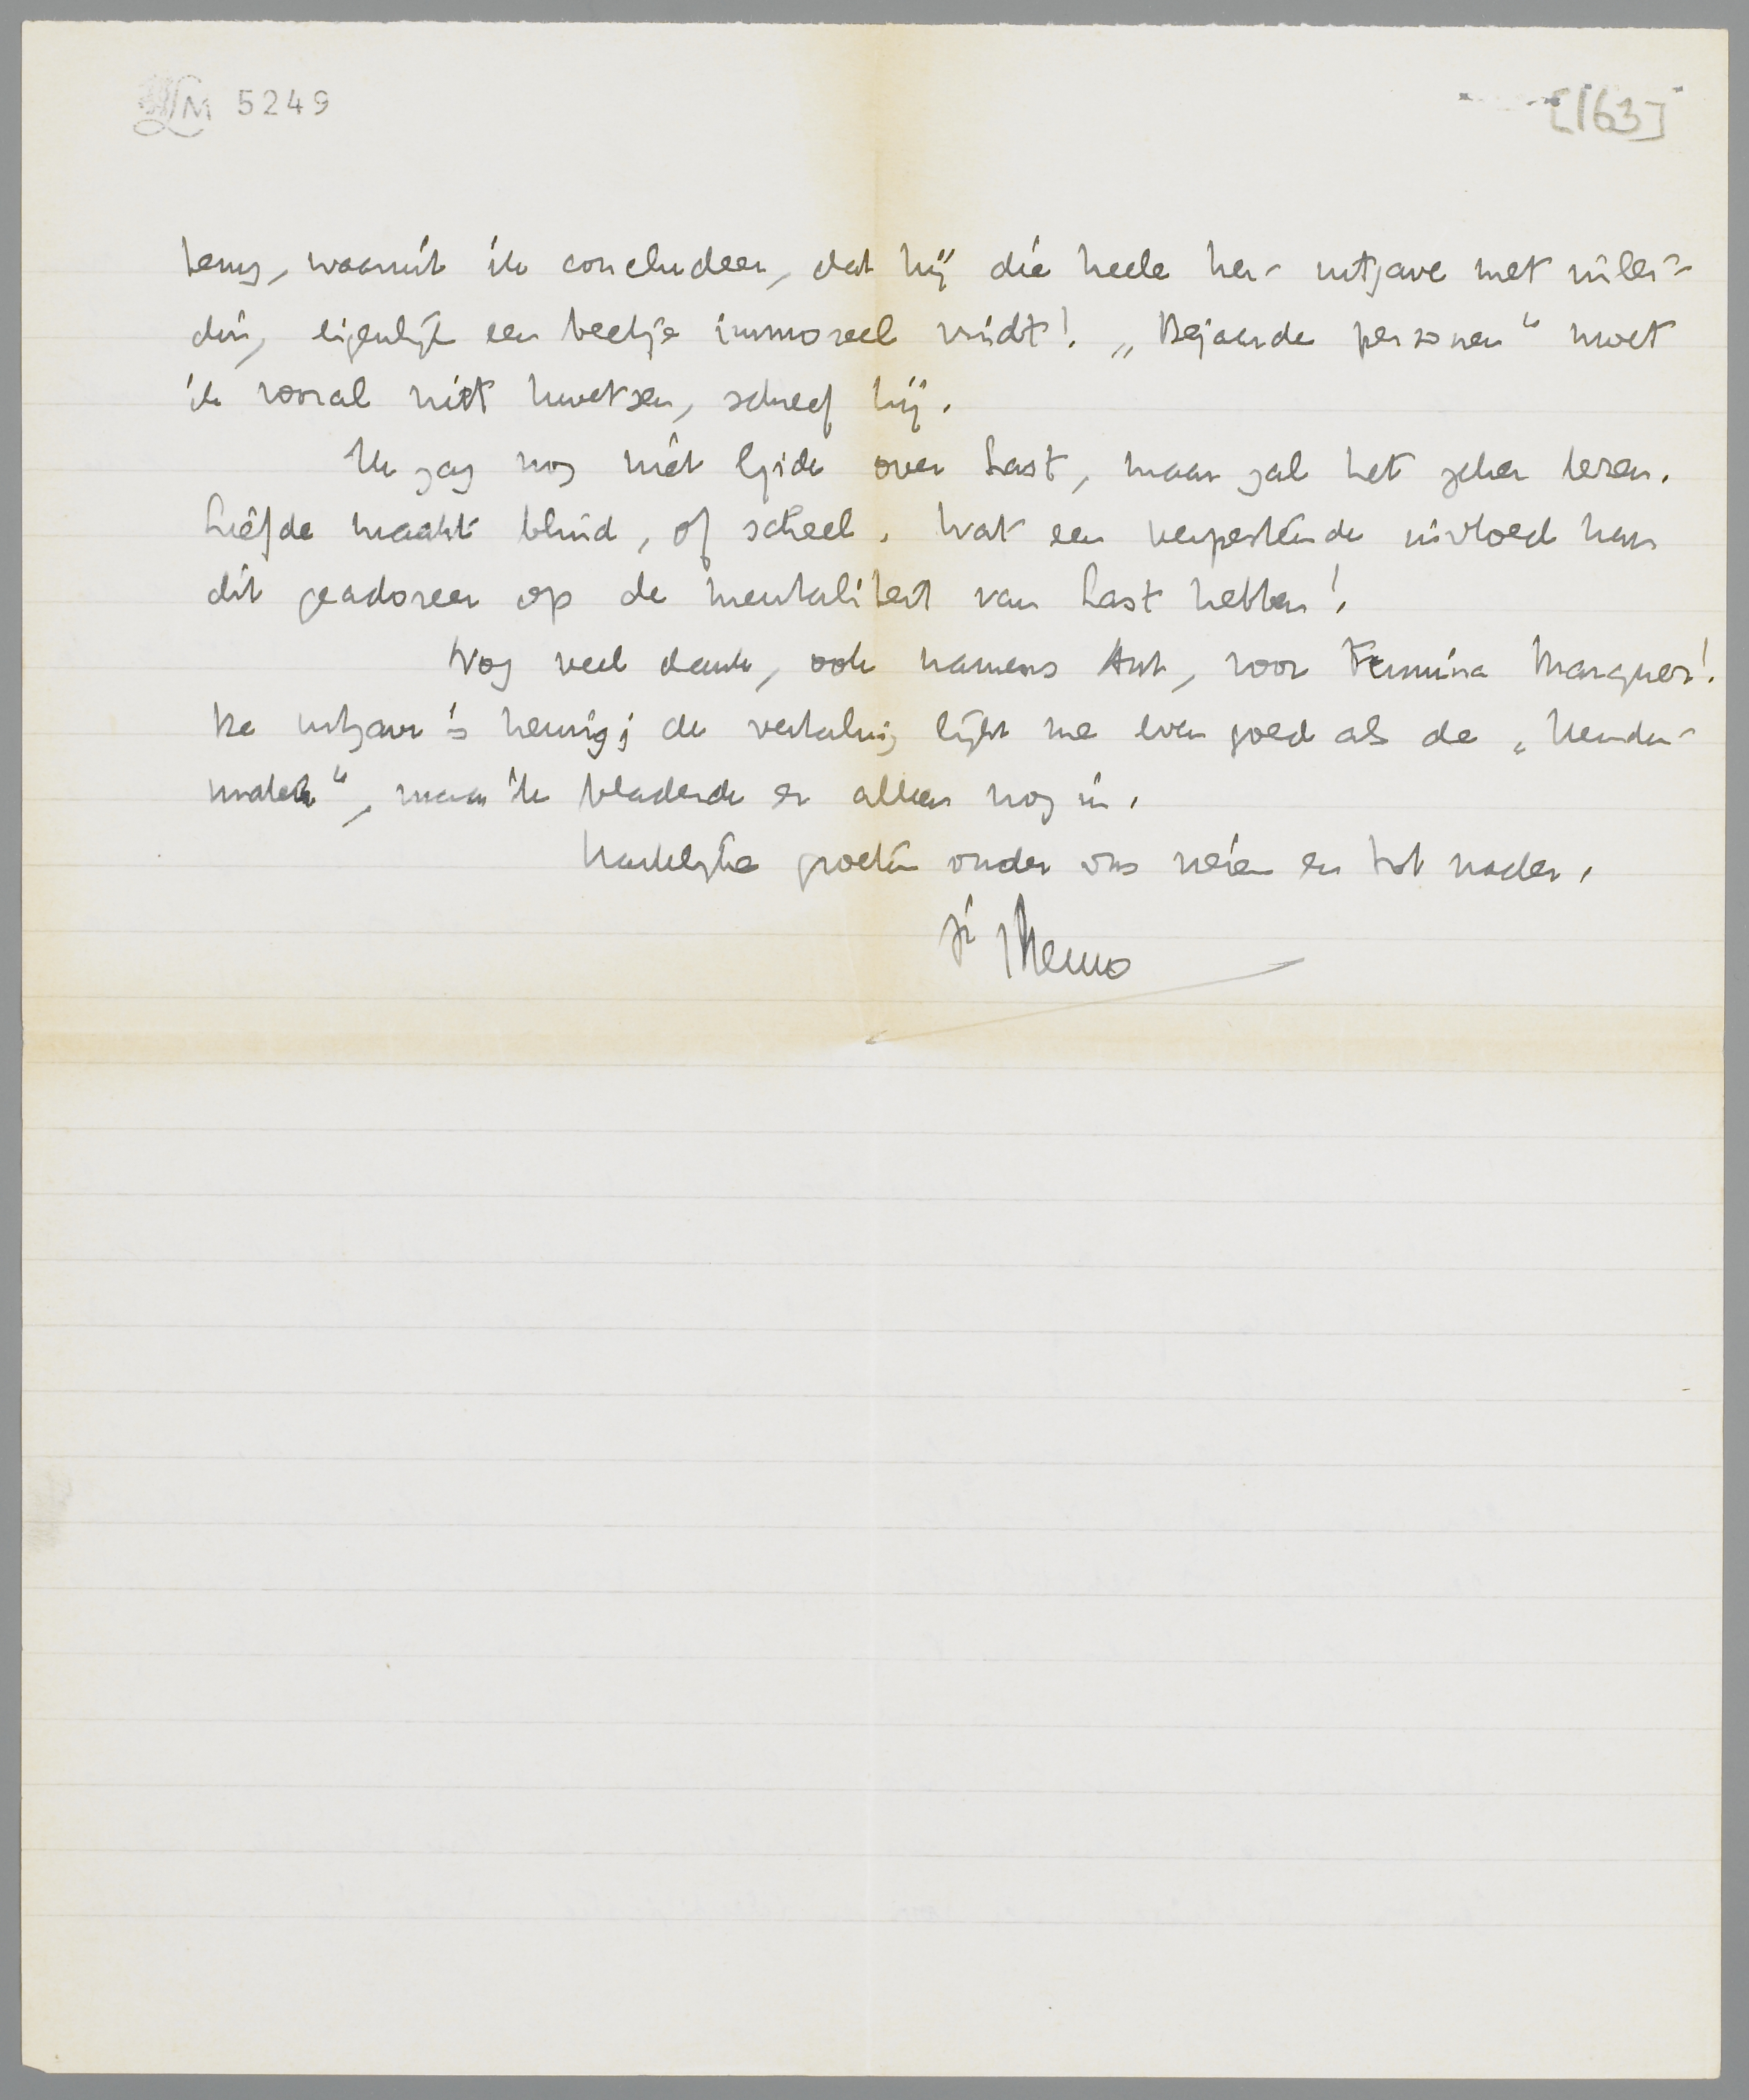 LM 5249
[163]
terug, waaruit ik concludeer, dat hij die heele her-uitgave met inlei-
ding eigenlijk een beetje immoreel vindt! „Bejaarde personen“ moet
ik vooral niet kwetsen, schreef hij.
Ik zag nog niet Gide over Last, maar zal het zeker lezen.
Liefde maakt blind, of scheel. Wat een verpestende invloed kan
dit geadoreer op de mentaliteit van Last hebben!
Nog veel dank, ook namens Ant, voor Fermina Marquez!
De uitgave is keurig; de vertaling lijkt me even goed als de „kinder-
maten“, maar ik bladerde er alleen nog in.
Hartelijke groeten onder ons vieren en tot nader.
je Menno